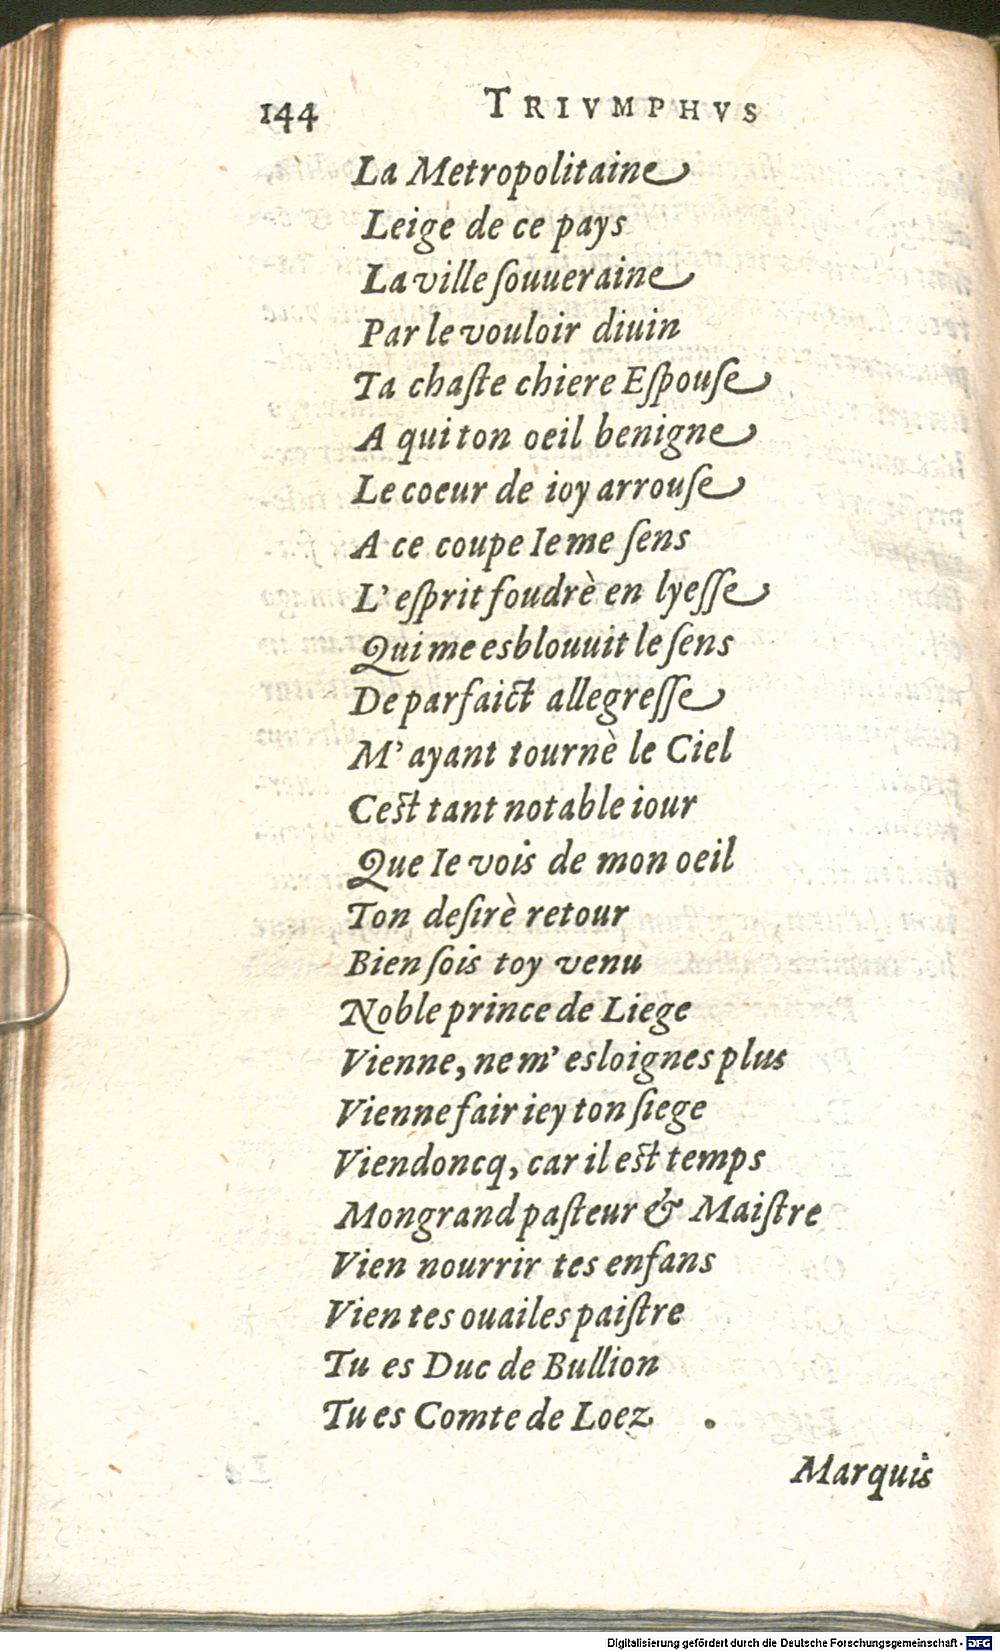 144 TRIVMPHVS
La Metropolitaine
Leige de ce pays
La ville ſouueraine
Par le vouloir diuin
Ta chaſte chiere Eſpouſe
A qui ton oeil benigne
Le coeur de ioy arrouſe
A ce coupe Ie me ſens
L' eſprit foudrè en lyeſſe
Qui me esblouuit le ſens
De parfaict allegreſſe
M' ayant tournè le Ciel
Ceſt tant notable iour
Que Ie vois de mon oeil
Ton deſirè retour
Bien ſois toy venu
Noble prince de Liege
Vienne, ne m' esloignes plus
Vienne fair iey ton ſiege
Vien doncq, car il eſt temps
Mon grand paſteur & Maiſtre
Vien nourrir tes enfans
Vien tes ouailes paiſtre
Tu es Duc de Bullion
Tu es Comte de Loez .
Marquis
Digitalisierung gefördert durch die Deutsche Forschungsgemeinschaft - DFG